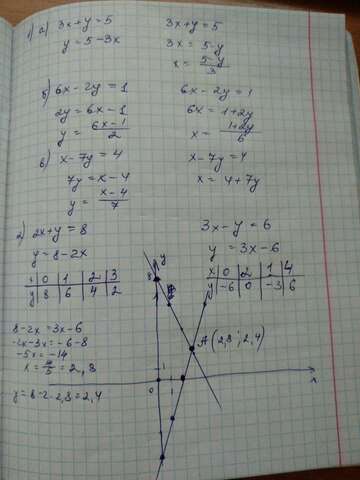 1) а) 3x+y=5    3x+y=5
y=5-3x    3x=5-y
x=5-y/3
б) 6x-2y=1    6x-2y=1
2y=6x-1    6x=1+2y
y=6x-1/2    x=1+2y/6
в) x-7y=4    x-7y=4
7y=x-4    x=4+7y
y=x-4/7
2) 2x+y=8    3x-y=6
y=8-2x    y=3x-6
x|0|1|2|3    x|0|2|1|4
y|8|6|4|2    y|-6|0|-3|6
y
8
8-2x=3x-6
-2x-3x=-6-8
-5x=-14
x=14/5=2,8
A(2,8;2,4)
y=8-2·2,8=2,4
1
0 1 x